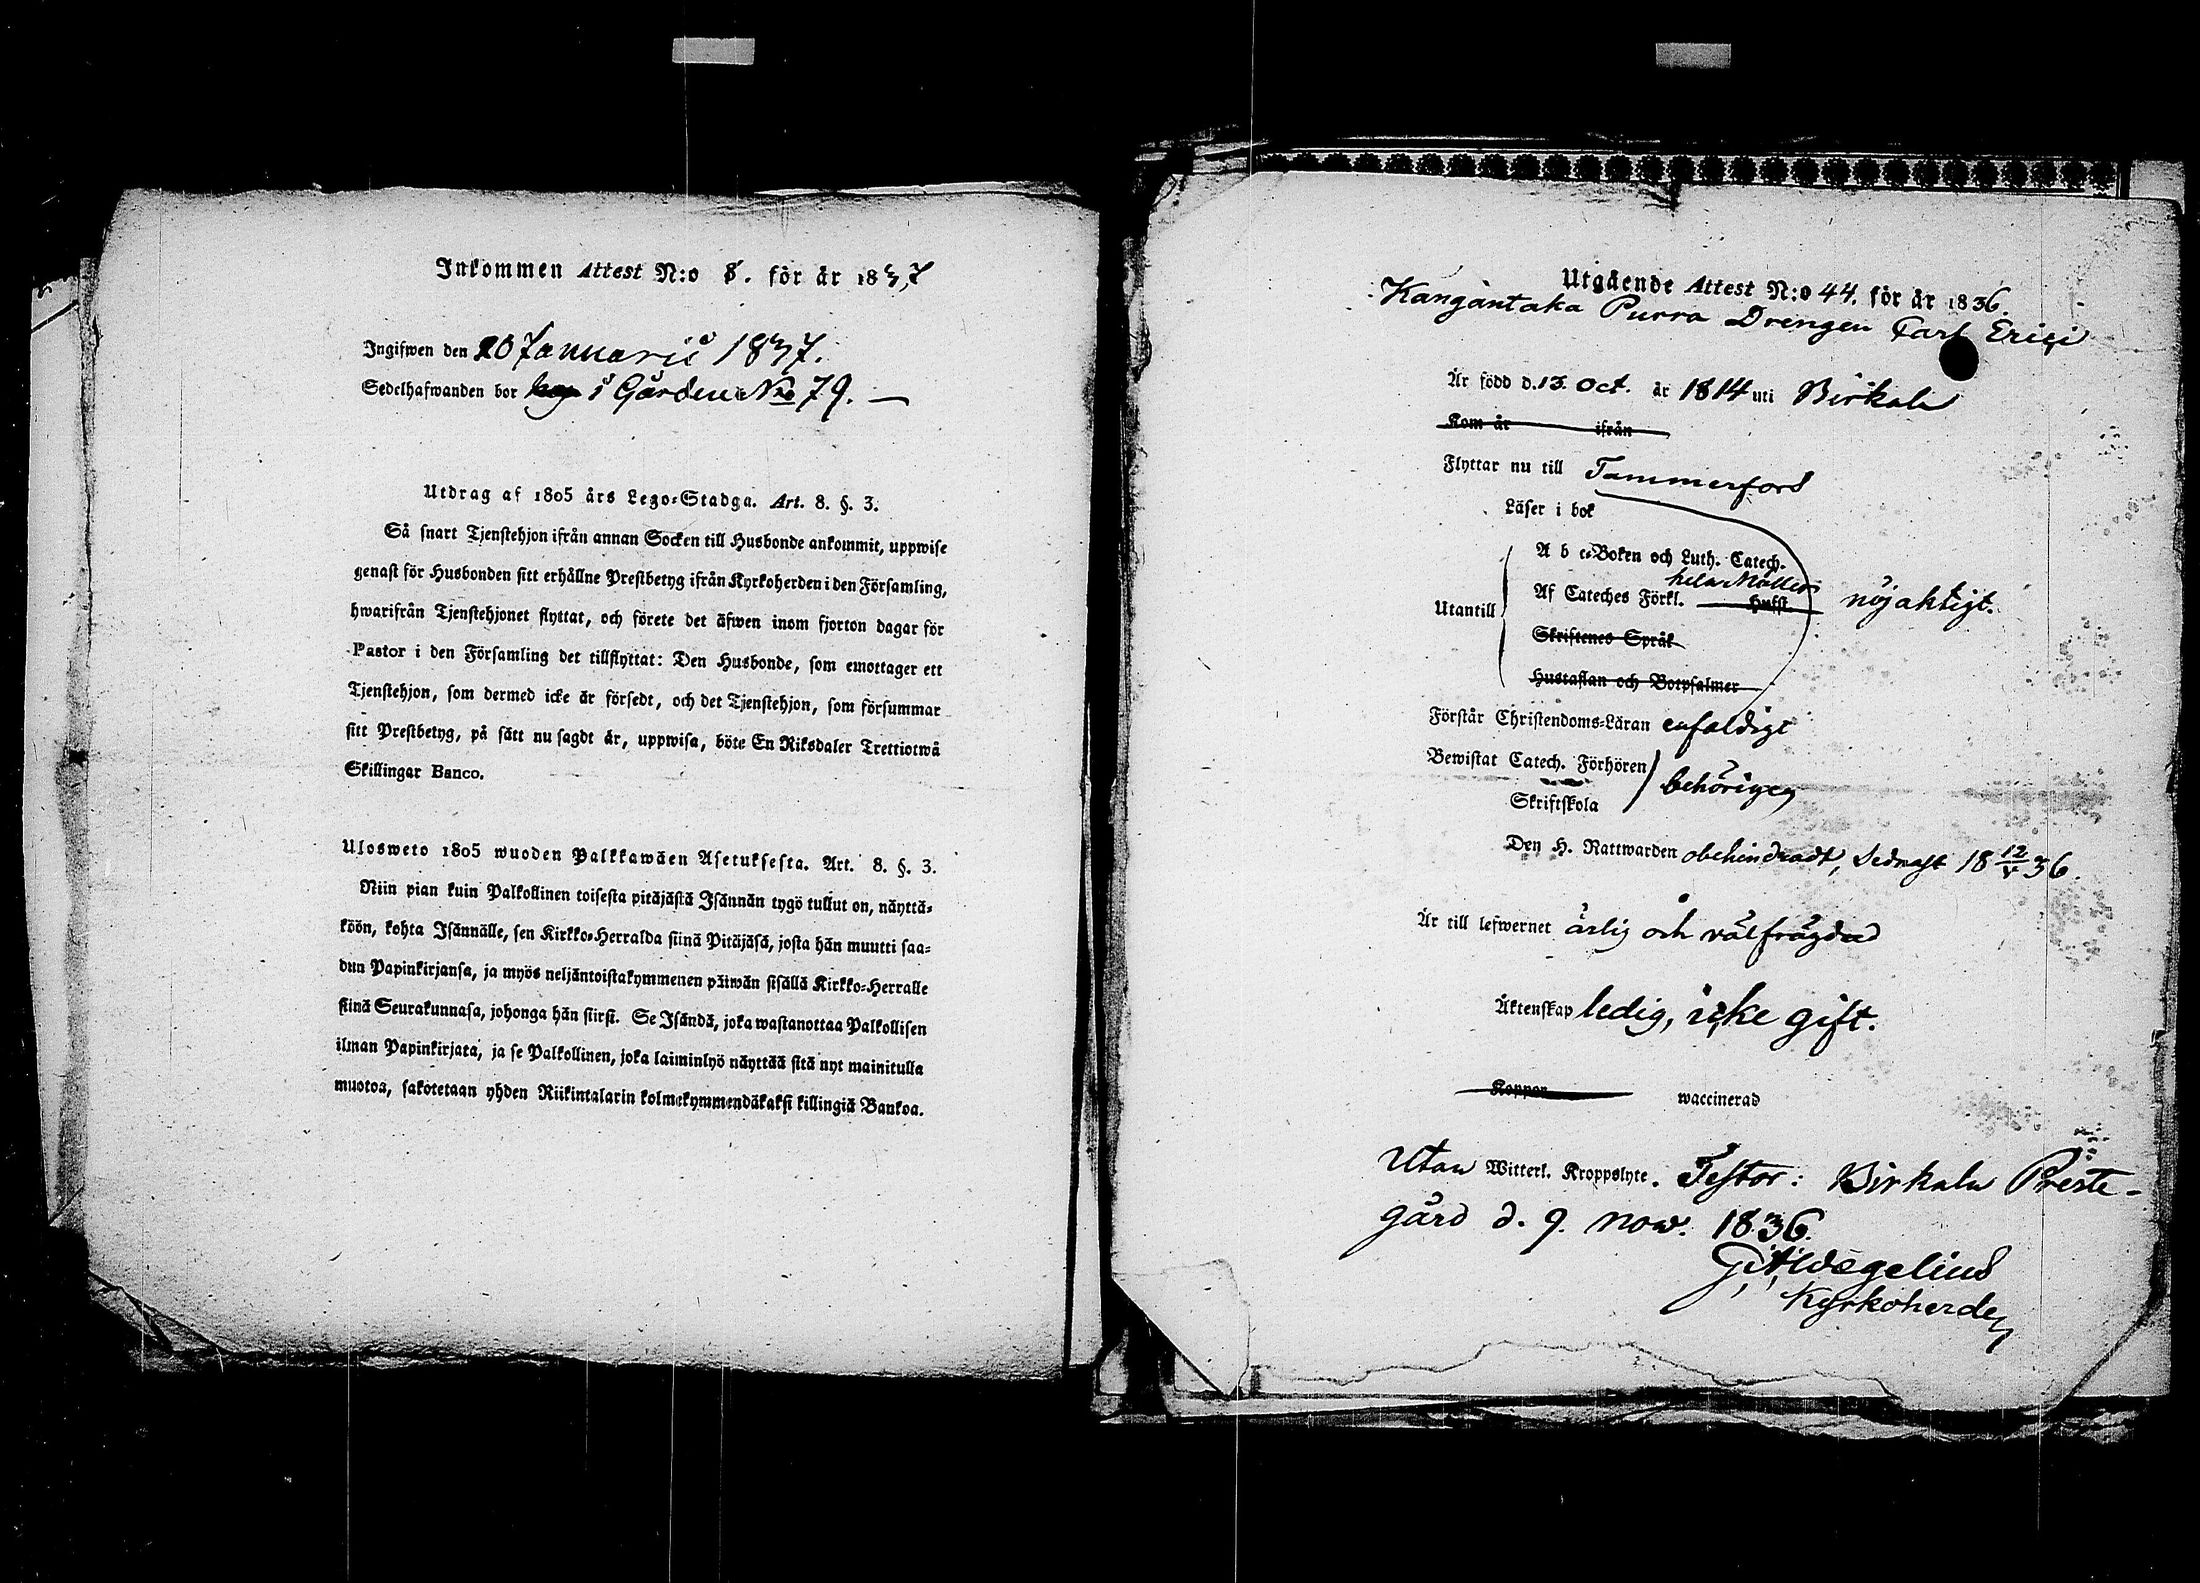 Inkommen Attest N:o 8. för år 1837
Ingifwen den 20 Januarii 1837.
Sedelhafwanden bor i Gården No 79. —
Utdrag af 1805 års Lego-Stadga. Art. 8. §. 3.
Så snart Tjenstehjon ifrån annan Socken till Husbonde ankommit, uppwise
genast för Husbonden sitt erhållne Prestbetyg ifrån Kyrkoherden i den Församling,
hwarifrån Tjenstehjonet flyttat, och förete det äfwen inom fjorton dagar för
Pastor i den Församling det tillflyttat: Den Husbonde, som emottager ett
Tjenstehjon, som dermed icke är försedt, och det Tjenstehjon, som försummar
sitt Prestbetyg, på sätt nu sagdt är, uppwisa, böte En Riksdaler Trettiotwå
Skillingar Banco.
Ulosweto 1805 wuoden Palkkawäen Asetuksesta. Art. 8. §. 3.
Niin pian kuin Palkollinen toisesta pitäjästä Isännän tygö tullut on, näyttä-
köön, kohta Isännälle, sen Kirkko-Herralda siinä Pitäjäsä, josta hän muutti saa-
dun Papinkirjansa, ja myös neljäntoistakymmenen päiwän sisällä Kirkko-Herralle
siinä Seurakunnasa, johonga hän siirsi. Se Isändä, joka wastanottaa Palkollisen
ilman Papinkirjata, ja se Palkollinen, joka laiminlyö näyttää sitä nyt mainitulla
muotoa, sakotetaan yhden Riikintalarin kolmekymmendäkaksi killingiä Bankoa.
Utgående Attest N:o 44. för år 1836.
Kangantaka Purra Drengen Carl Erici
Är född d. 13 Oct. år 1814 uti Birkala
Kom år ifrån
Flyttar nu till Tammerfors
Läser i bok
A b c-Boken och Luth. Catech.
hela Möller
Utantill Af Cateches Förkl. Hufst. nöjaktigt.
Skriftenes Språk
Hustaflan och Botpsalmer
Förstår Christendoms-Läran enfaldigt
Bewistat Catech. Förhören
behörigen
Skriftskola
Den H. Nattwarden obehindradt, sednast 18 12/V 36.
Är till lefwernet ärlig och välfrägdad
Äktenskap ledig, icke gift.
Koppor waccinerad
Utan Witterl. Kroppslyte. Testor: Birkala Preste-
gård d. 9. Nov. 1836.
Widegelius
Kyrkoherde